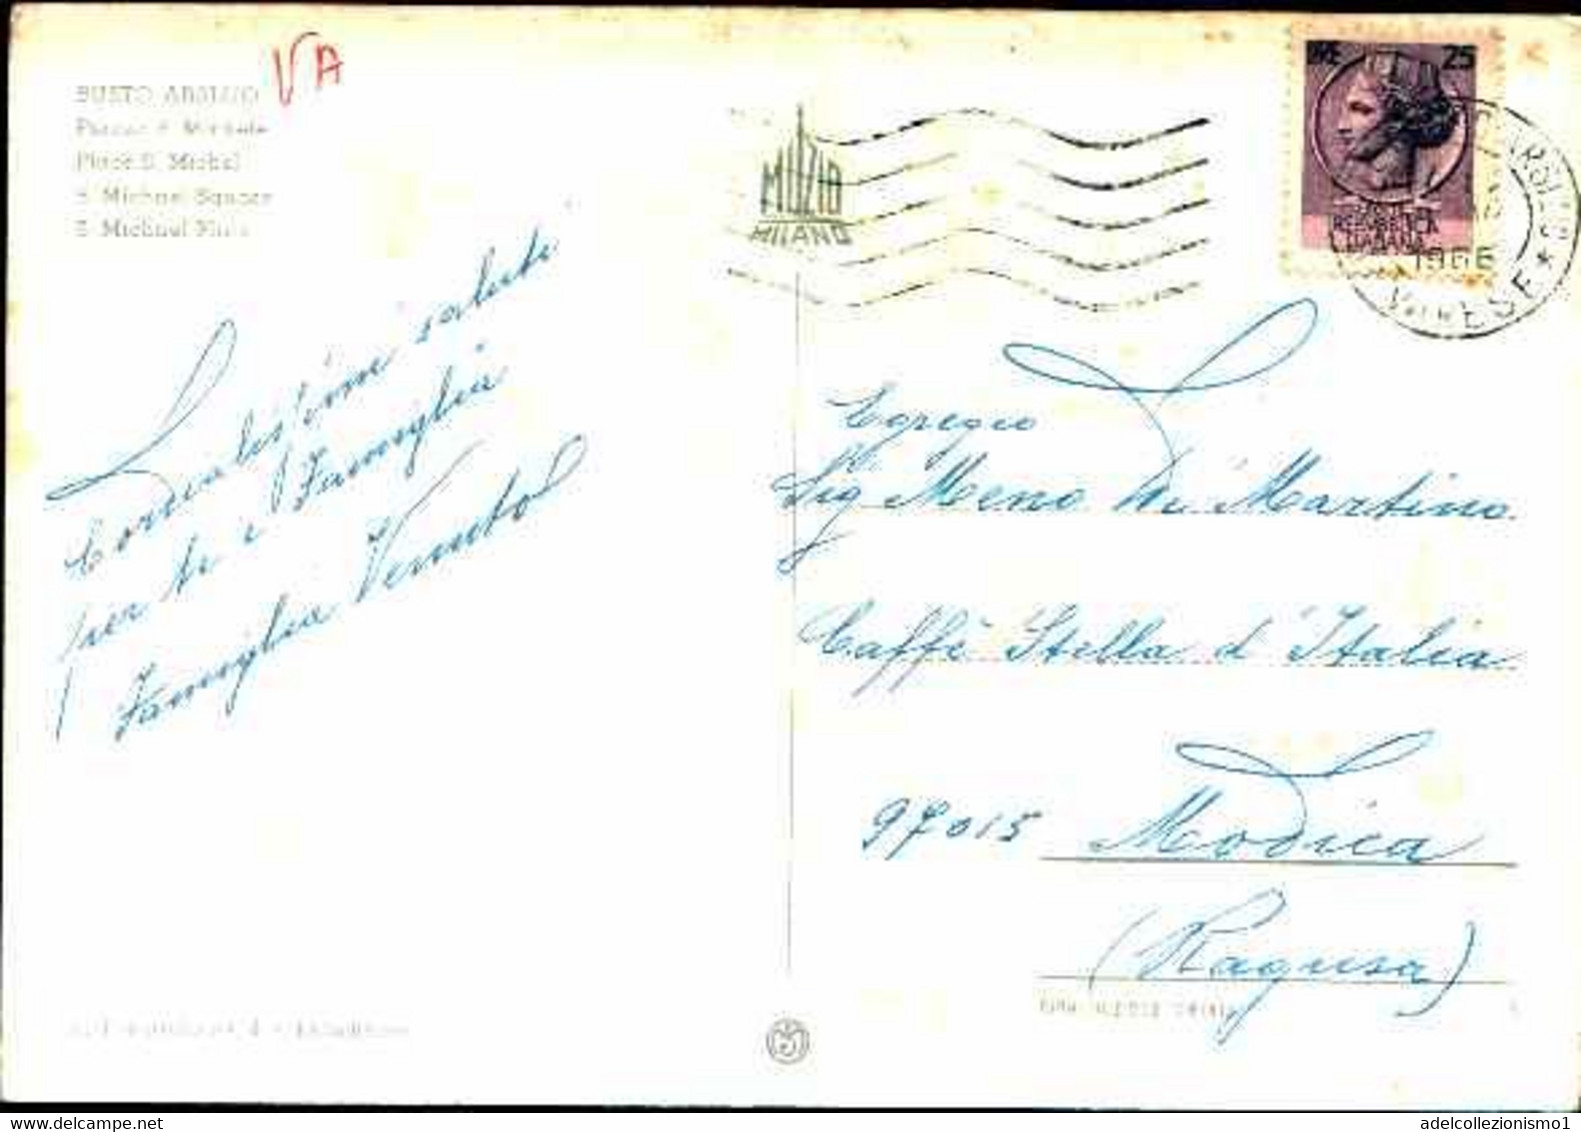 VA
BUSTO ARSIZIO
Piazza S. Michele
Place S. Michel
S. Michael Square
S. Michael
MUZIO
MILANO
25
REPUBBLICA
ITALIANA
1966
VARESE *
Cordialissime saluti
per te e Famiglia
Famiglia
Egregio
Sig Meno Di Martino
Caffè Stella d'Italia
97015 Modica
(Ragusa)
adelcollezionismo1